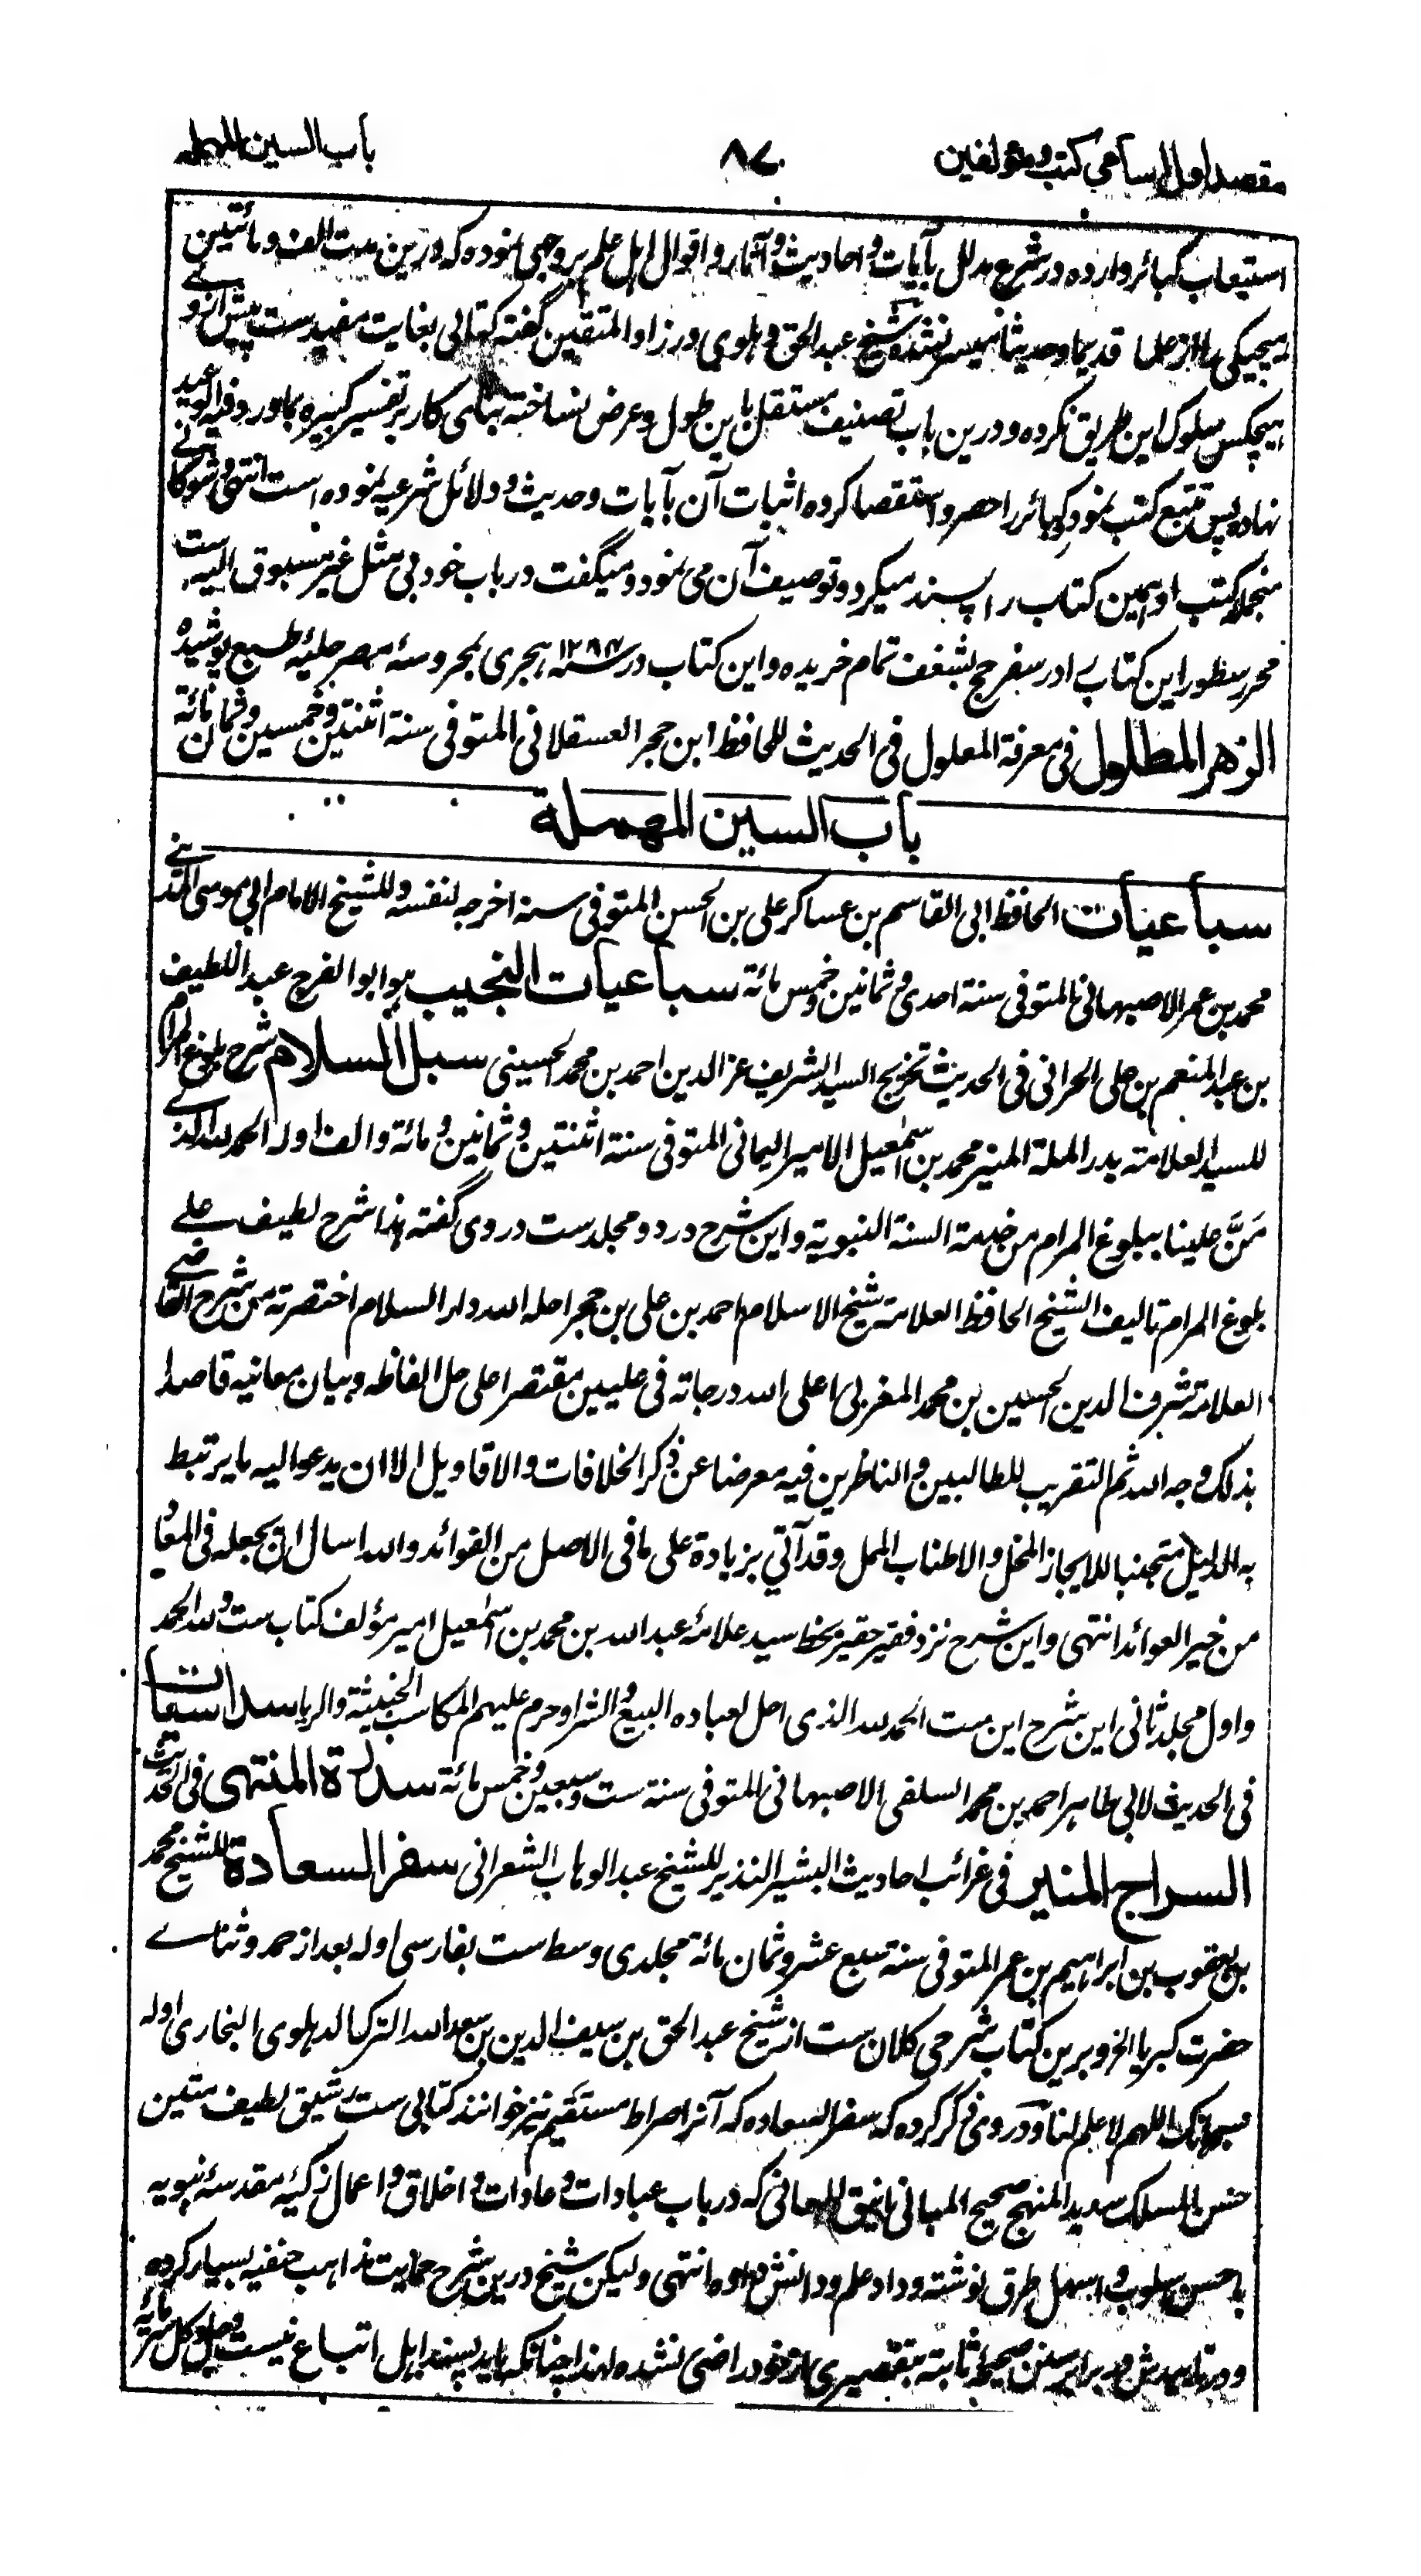 مقصد اول اسامی کتب و مؤلفین
۸۷
باب السین المهمله
استیعاب کبائر وارده در شرع مدلل بآیات و احادیث و آثار و اقوال اهل علم بر وجهی نموده که درین مدت الف و مائتین
هیچیکی را از علما قدیما و حدیثا میسر نشده شیخ عبدالحق دهلوی در زاد المتقین گفته کتابی بغایت مفیدست پیش از وے
هیچکس سلوک این طریق نکرده و درین باب تصنیف مستقل باین طول و عرض نساخته بنای کار بر تفسیر کبیره بما ورد فیه الوعید
نهاده پس تتبع کتب نموده کبائر را حصر و استقصا کرده اثبات آن بآیات و حدیث و دلائل شرعیه نموده است انتهی و شوکانے
منجمله کتب او همین کتاب را پسند میکرد و توصیف آن می نمود و میگفت در باب خود بی مثل غیر مسبوق الیه ست
محرر سطور این کتاب را در سفر حج بشغف تمام خریده و این کتاب در سنه ۱۲۸۴ هجری بمحروسهٔ مصر حلیهٔ طبع پوشیده
الزهر المطلول فی معرفة المعلول فی الحدیث للحافظ ابن حجر العسقلانی المتوفی سنة اثنتین و خمسین و ثمان مائة
باب السین المهملة
سباعیات الحافظ ابی القاسم بن عساکر علی بن الحسن المتوفی سنه اخرجه لنفسه و للشیخ الامام ابی موسی المدینے
محمد بن عمر الاصبهانی المتوفی سنة احدی و ثمانین و خمس مائة سباعیات النجیب هو ابو الفرج عبد اللطیف
بن عبد المنعم بن علی الحرانی فی الحدیث تخریج السید الشریف عز الدین احمد بن محمد الحسینی سبل السلام شرح بلوغ المرام
للسید العلامة بدر الملة المنیر محمد بن اسمٰعیل الامیر الیمانی المتوفی سنة اثنتین و ثمانین و مائة و الف اوله الحمد لله الذے
مَنَّ علینا ببلوغ المرام من خدمة السنة النبویة و این شرح در دو مجلد ست در وی گفته هذا شرح لطیف علے
بلوغ المرام تالیف الشیخ الحافظ العلامة شیخ الاسلام احمد بن علی بن حجر احله الله دار السلام اختصرته من شرح القاضے
العلامة شرف الدین الحسین بن محمد المغربی اعلی الله درجاته فی علیین مقتصرا علی حل الفاظه و بیان معانیه قاصدا
بذلک وجه الله ثم التقریب للطالبین و الناظرین فیه معرضا عن ذکر الخلافات و الاقاویل الا ان یدعو الیه ما یرتبط
به الدلیل متجنبا للایجاز المخل و الاطناب الممل و قد آتي بزیادة علی ما فی الاصل من الفوائد و الله اسال ان یجعله فی المعاد
من خیر العوائد انتهی و این شرح نزد فقیر حقیر بخط سید علامه عبد الله بن محمد بن اسمٰعیل امیر مؤلف کتاب ست و لله الحمد
و اول مجلد ثانی این شرح این ست الحمد لله الذی احل لعباده البیع و الشرا و حرم علیهم المکاسب الخبیثة و الربا سداسیات
فی الحدیث لابی طاهر احمد بن محمد السلفی الاصبهانی المتوفی سنة ست و سبعین و خمس مائة سدرة المنتهی فی الحدیث
السراج المنیر فی غرائب احادیث البشیر النذیر للشیخ عبد الوهاب الشعرانی سفر السعادة للشیخ محمد
بن یعقوب بن ابراهیم بن عمر المتوفی سنة سبع عشر و ثمان مائة مجلدی وسط ست بفارسی اوله بعد از حمد و ثناے
حضرت کبریا الخ و برین کتاب شرحی کلان ست از شیخ عبد الحق بن سیف الدین بن سعد الله الترک الدهلوی البخاری اوله
سبحانک اللهم لا علم لنا و در وی ذکر کرده که سفر السعاده که آنرا صراط مستقیم نیز خوانند کتابی ست رشیق لطیف متین
حسن المسلک سدید المنهج صحیح المبانی انیق المعانی که در باب عبادات و عادات و اخلاق و اعمال زکیهٔ مقدسهٔ نبویه
باحسن اسلوب و اسهل طرق نوشته و داد علم و دانش داده انتهی و لیکن شیخ درین شرح حمایت مذاهب حنفیه بسیار کرده
و در برابر سنن صحیحه ثابته بتقصیری از خود راضی نشده لهذا چنانکه باید پسند اهل اتباع نیست و علی کل